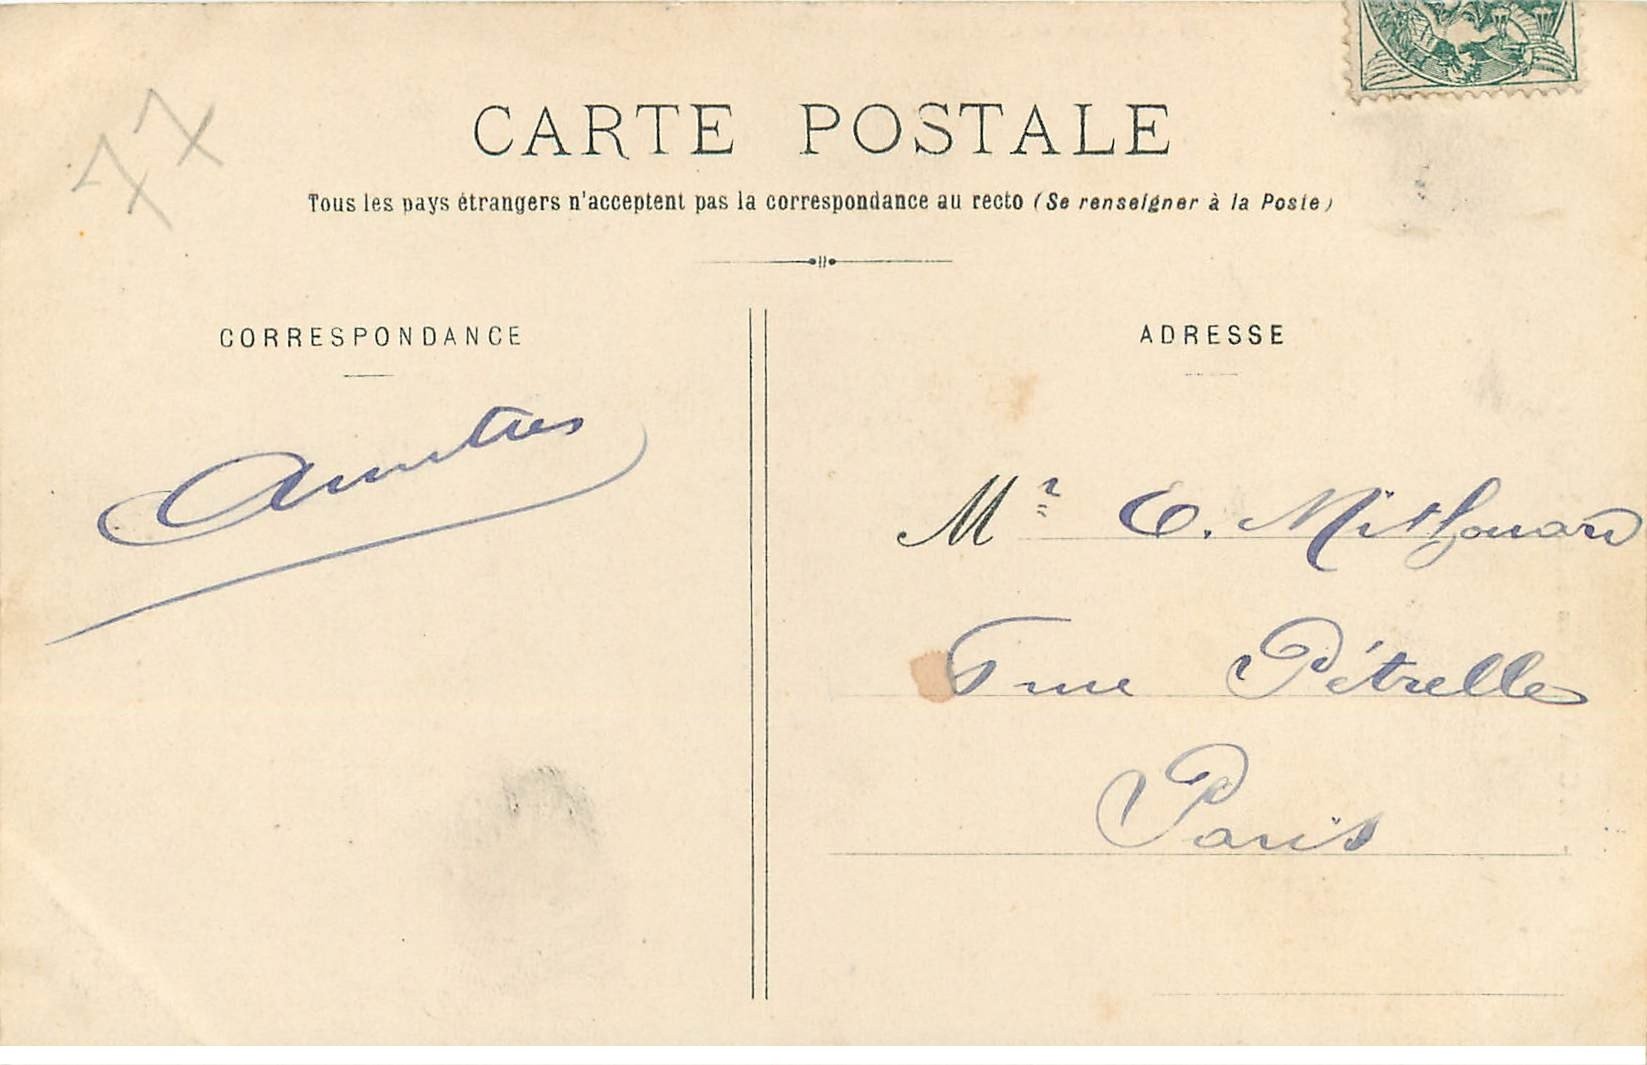 77
CARTE POSTALE
Tous les pays étrangers n'acceptent pas la correspondance au recto (Se renseigner à la Poste)
CORRESPONDANCE
ADRESSE
Amitiés
Mr E. Mithouard
5 rue Pétrelle
Paris